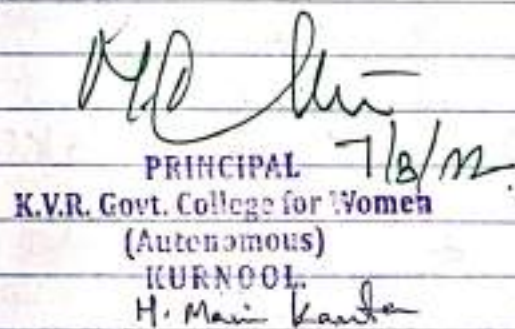 7/8/22
PRINCIPAL
K.V.R. Govt. College for Women
(Autonomous)
KURNOOL.
H.